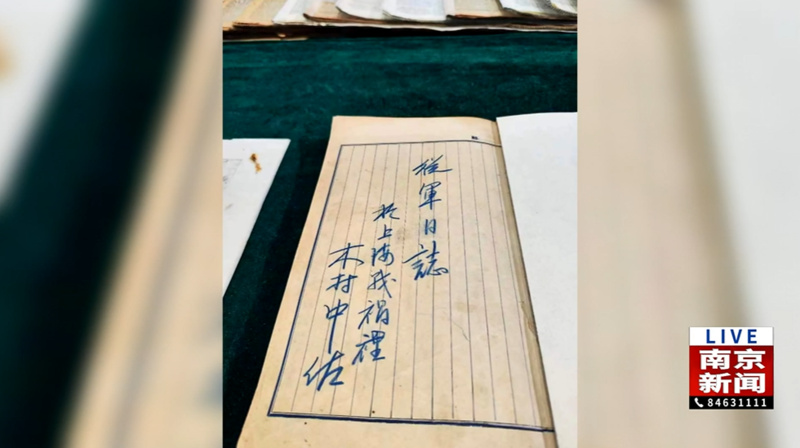 從軍日誌
於上海戎捐裡
木村中佐
LIVE
南京
新闻
84631111